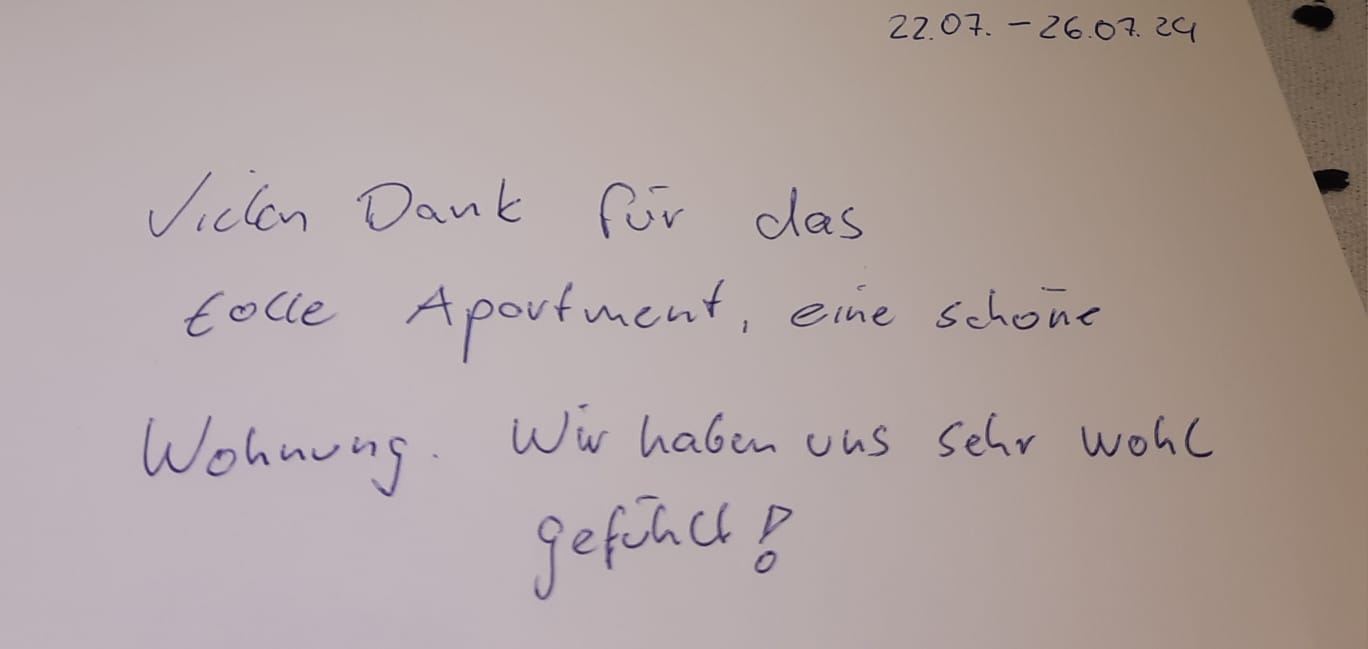 22.07. - 26.07.24
Vielen Dank für das
tolle Apartment, eine schöne
Wohnung. Wir haben uns sehr wohl
gefühlt!